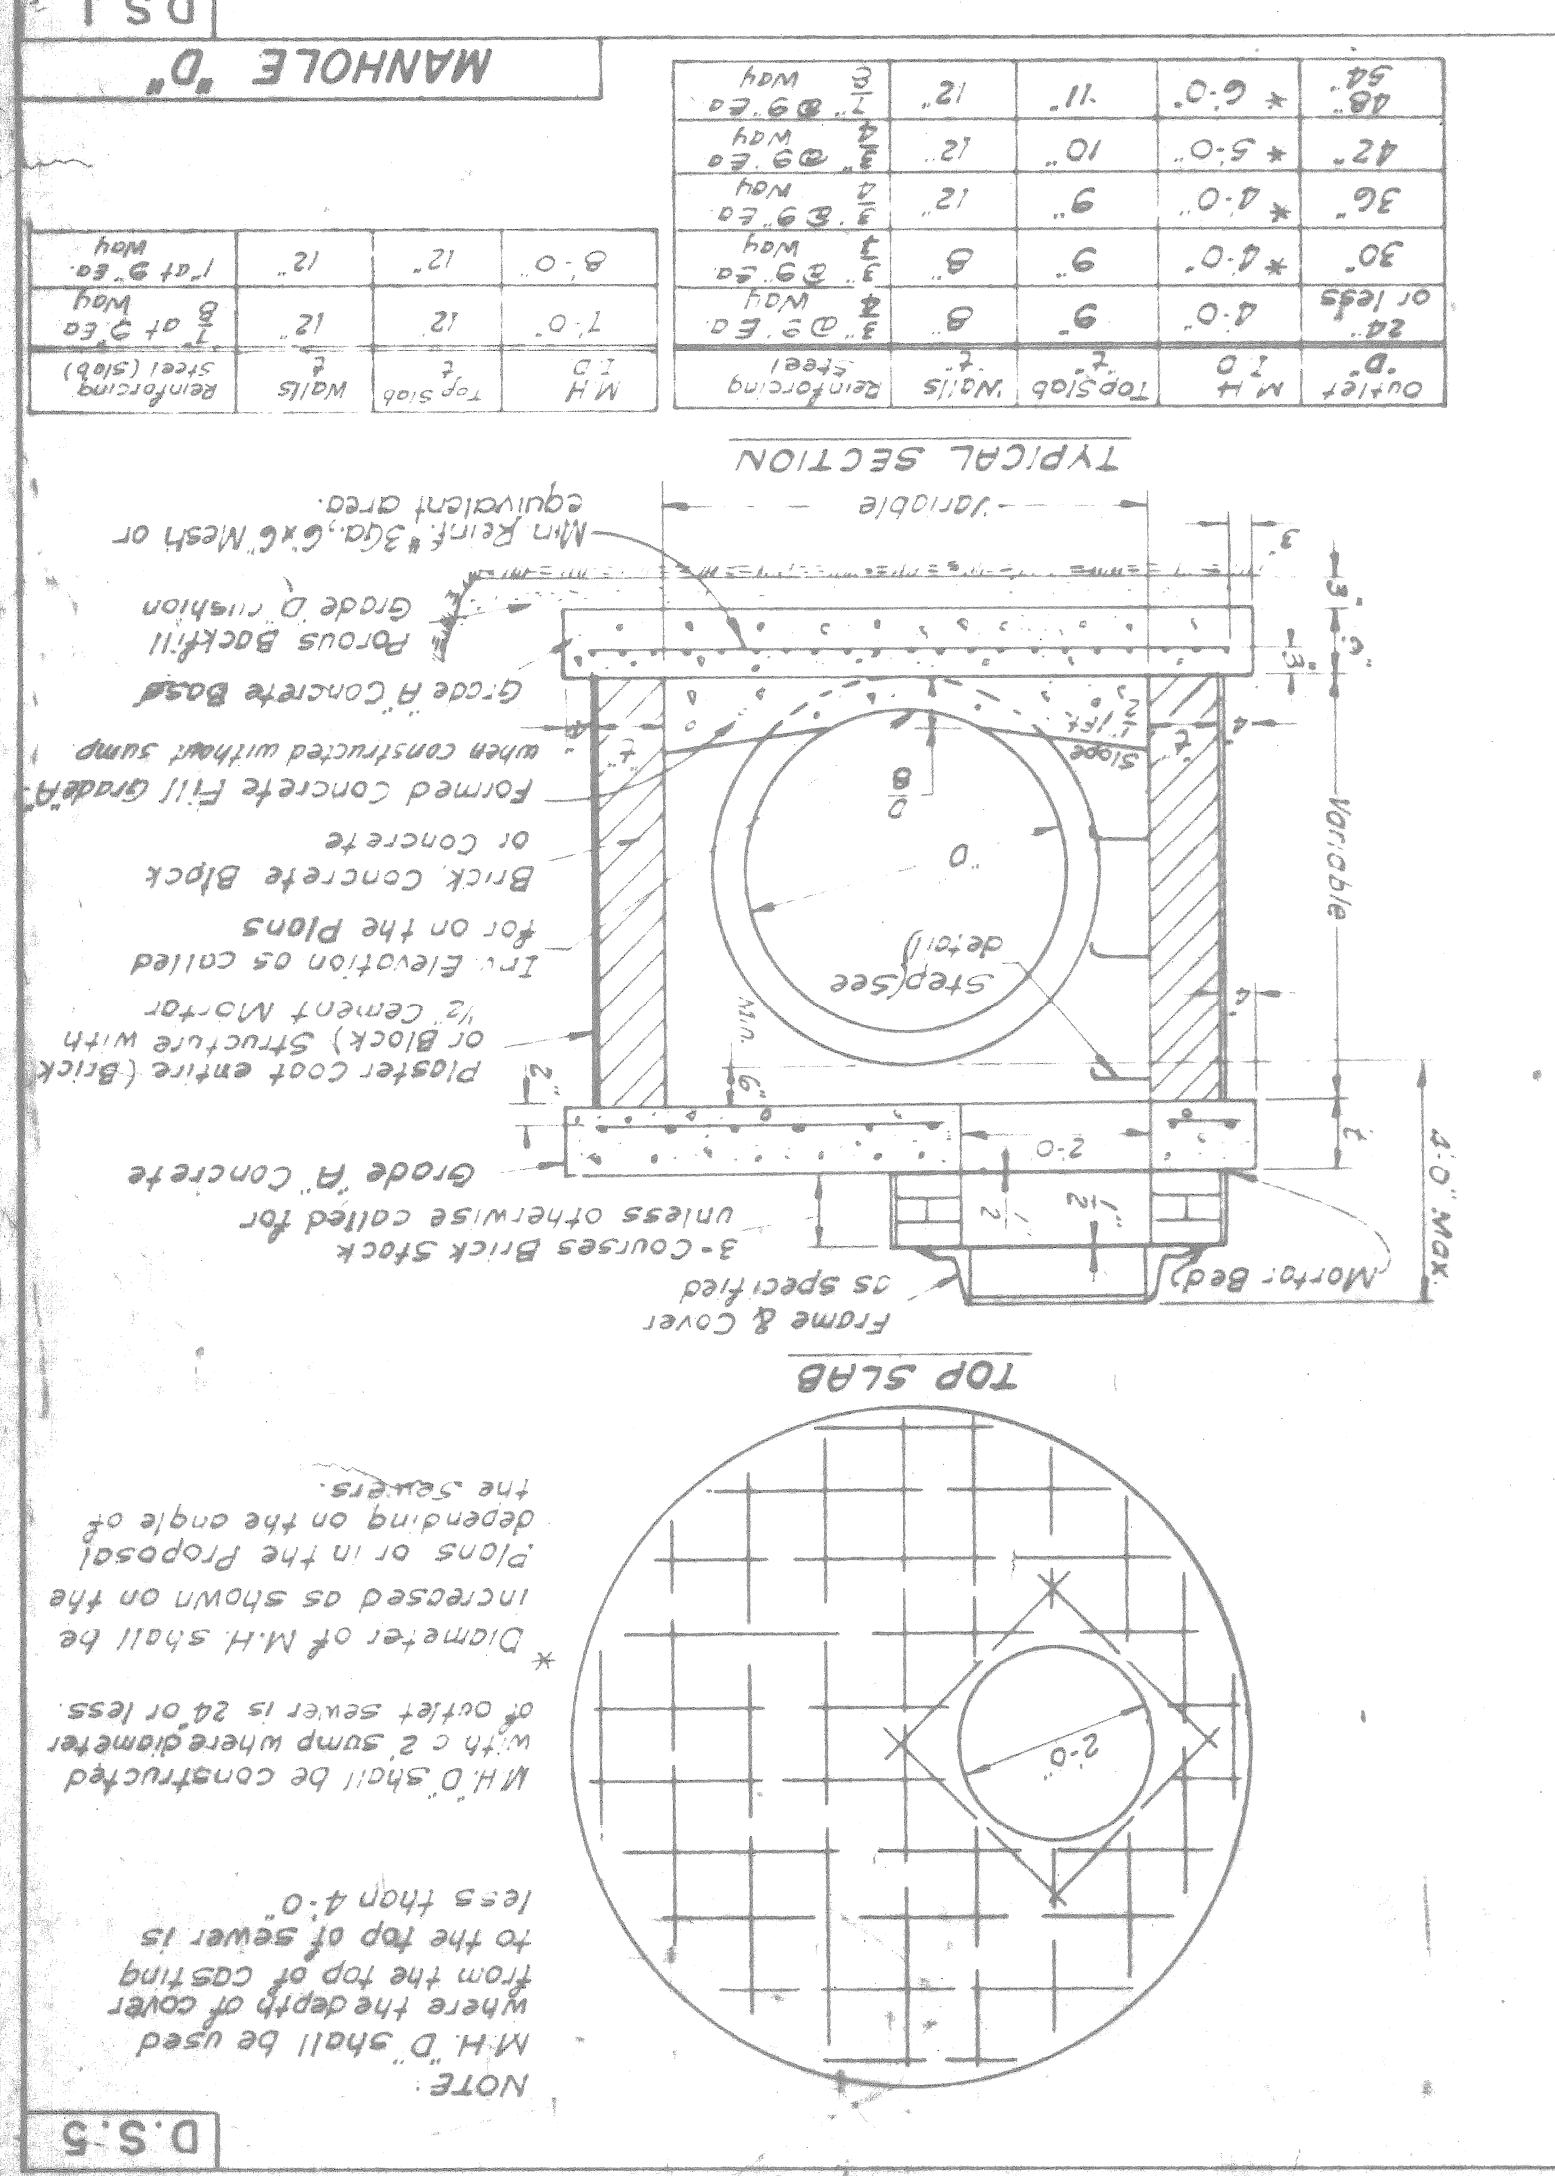 D.S.5
NOTE:
M.H. "D" shall be used
where the depth of cover
from the top of casting
to the top of sewer is
less than 4'-0"
M.H. "D" shall be constructed
with a 2' sump where diameter
of outlet sewer is 24" or less.
* Diameter of M.H. shall be
increased as shown on the
Plans or in the Proposal
depending on the angle of
the sewers.
2'-0"
TOP SLAB
Frame & Cover
as specified
3-Courses Brick Stack
unless otherwise called for
Grade "A" Concrete
Mortar Bed
4'-0" Max.
1/2"
1/2
2'-0
t
2"
6"
Min.
Plaster Coat entire (Brick
or Block) Structure with
1/2" Cement Mortar
Inv. Elevation as called
for on the Plans
Brick, Concrete Block
or Concrete
Formed Concrete Fill Grade "A"
when constructed without sump
Grade "A" Concrete Base
Porous Backfill
Grade "D" cushion
Min Reinf. #3Ga., 6"x6" Mesh or
equivalent area.
Step (See
detail)
"D"
D/8
Slope
1"/Ft.
2
Variable
4"
4"
4"
"t"
"t"
3"
3"
3"
Variable
TYPICAL SECTION
Outlet "D" | M.H I.D | Top Slab "t" | Walls "t" | Reinforcing Steel
24" or less | 4'-0" | 9" | 8" | 3/4" @ 9" Ea. Way
30" | * 4'-0" | 9" | 8" | 3/4" @ 9" Ea. Way
36" | * 4'-0" | 9" | 12" | 3/4" @ 9" Ea. Way
42" | * 5'-0" | 10" | 12" | 3/4" @ 9" Ea Way
48" 54" | * 6'-0" | 11" | 12" | 7/8" @ 9" Ea Way
M.H I.D | Top Slab t | Walls t | Reinforcing Steel (Slab)
7'-0" | 12" | 12" | 7/8" at 9" Ea Way
8'-0" | 12" | 12" | 1" at 9" Ea. Way
MANHOLE "D"